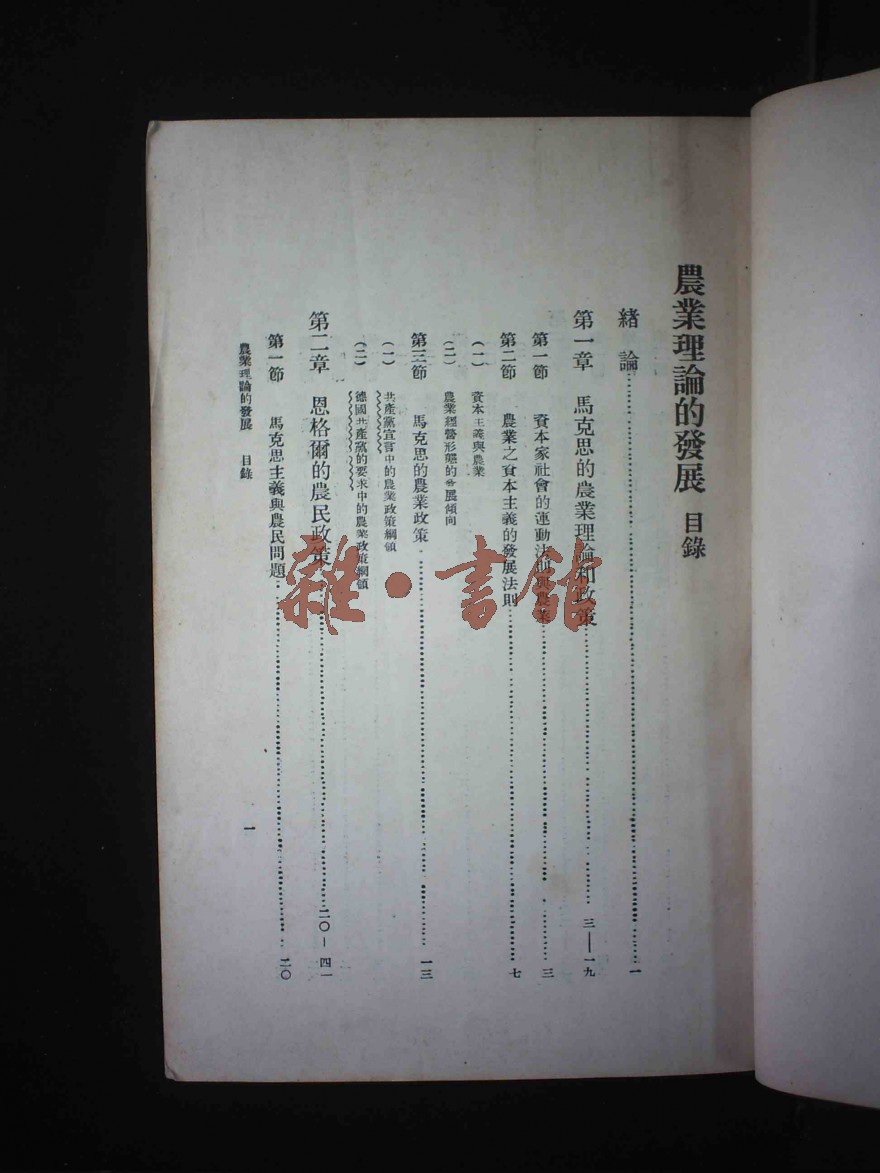 農業理論的發展 目錄
緒論 一
第一章 馬克思的農業理論和政策 三—一九
第一節 資本家社會的運動法則與農業 三
第二節 農業之資本主義的發展法則 七
(一) 資本主義與農業
(二) 農業經營形態的發展傾向
第三節 馬克思的農業政策 一三
(一) 共產黨宣言中的農業政策綱領
(二) 德國共產黨的要求中的農業政策綱領
第二章 恩格爾的農民政策 二〇—四一
第一節 馬克思主義與農民問題 二〇
農業理論的發展 目錄 一
雜·書館